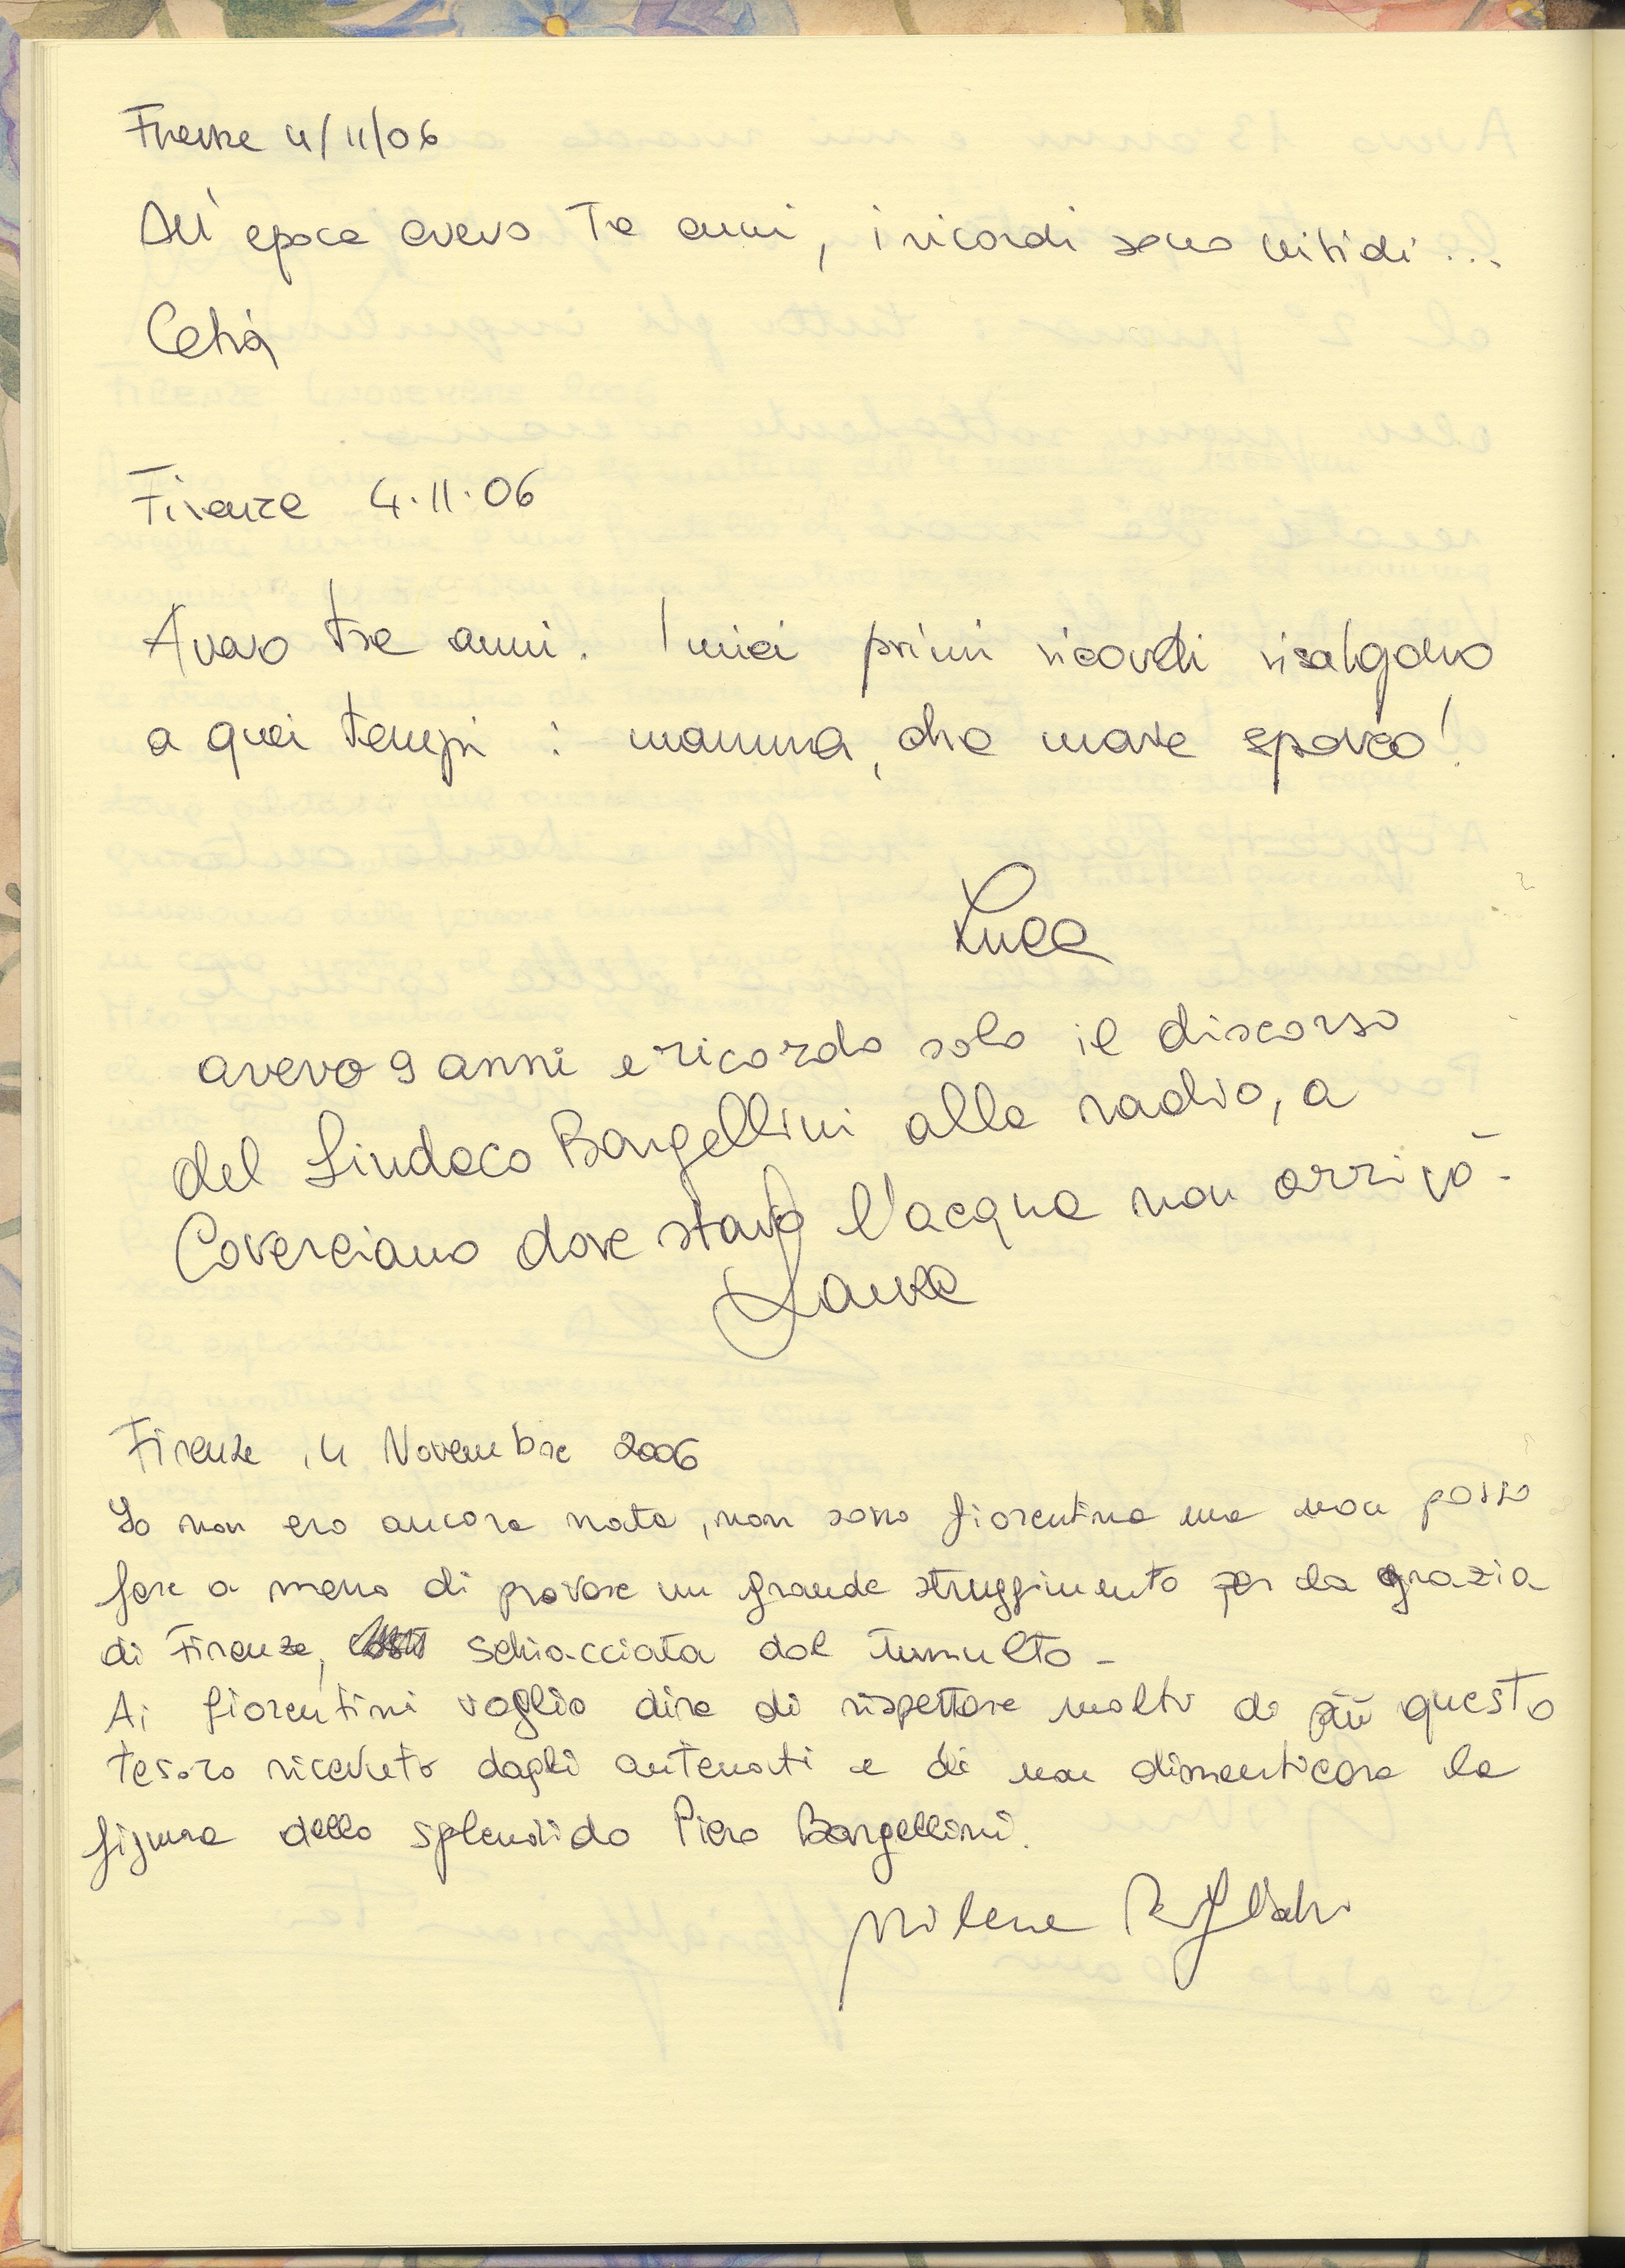 Firenze 4/11/06
All'epoca avevo Tre anni, i ricordi sono nitidi...
Firenze 4.11.06
Avevo tre anni. I miei primi ricordi risalgono
a quei tempi : mamma, che mare sporco!
Luca
avevo 9 anni e ricordo solo il discorso
del Sindaco Bargellini alla radio, a
Coverciano dove stavo l'acqua non arrivò-
Laura
Firenze, 4 Novembre 2006
Io non ero ancora nata, non sono fiorentina ma non posso
fare a meno di provare un grande struggimento per la grazia
di Firenze, schiacciata dal tumulto-
Ai fiorentini voglio dire di rispettare molto di più questo
tesoro ricevuto dagli antenati e di non dimenticare la
figura dello splendido Piero Bargellini.
Milena